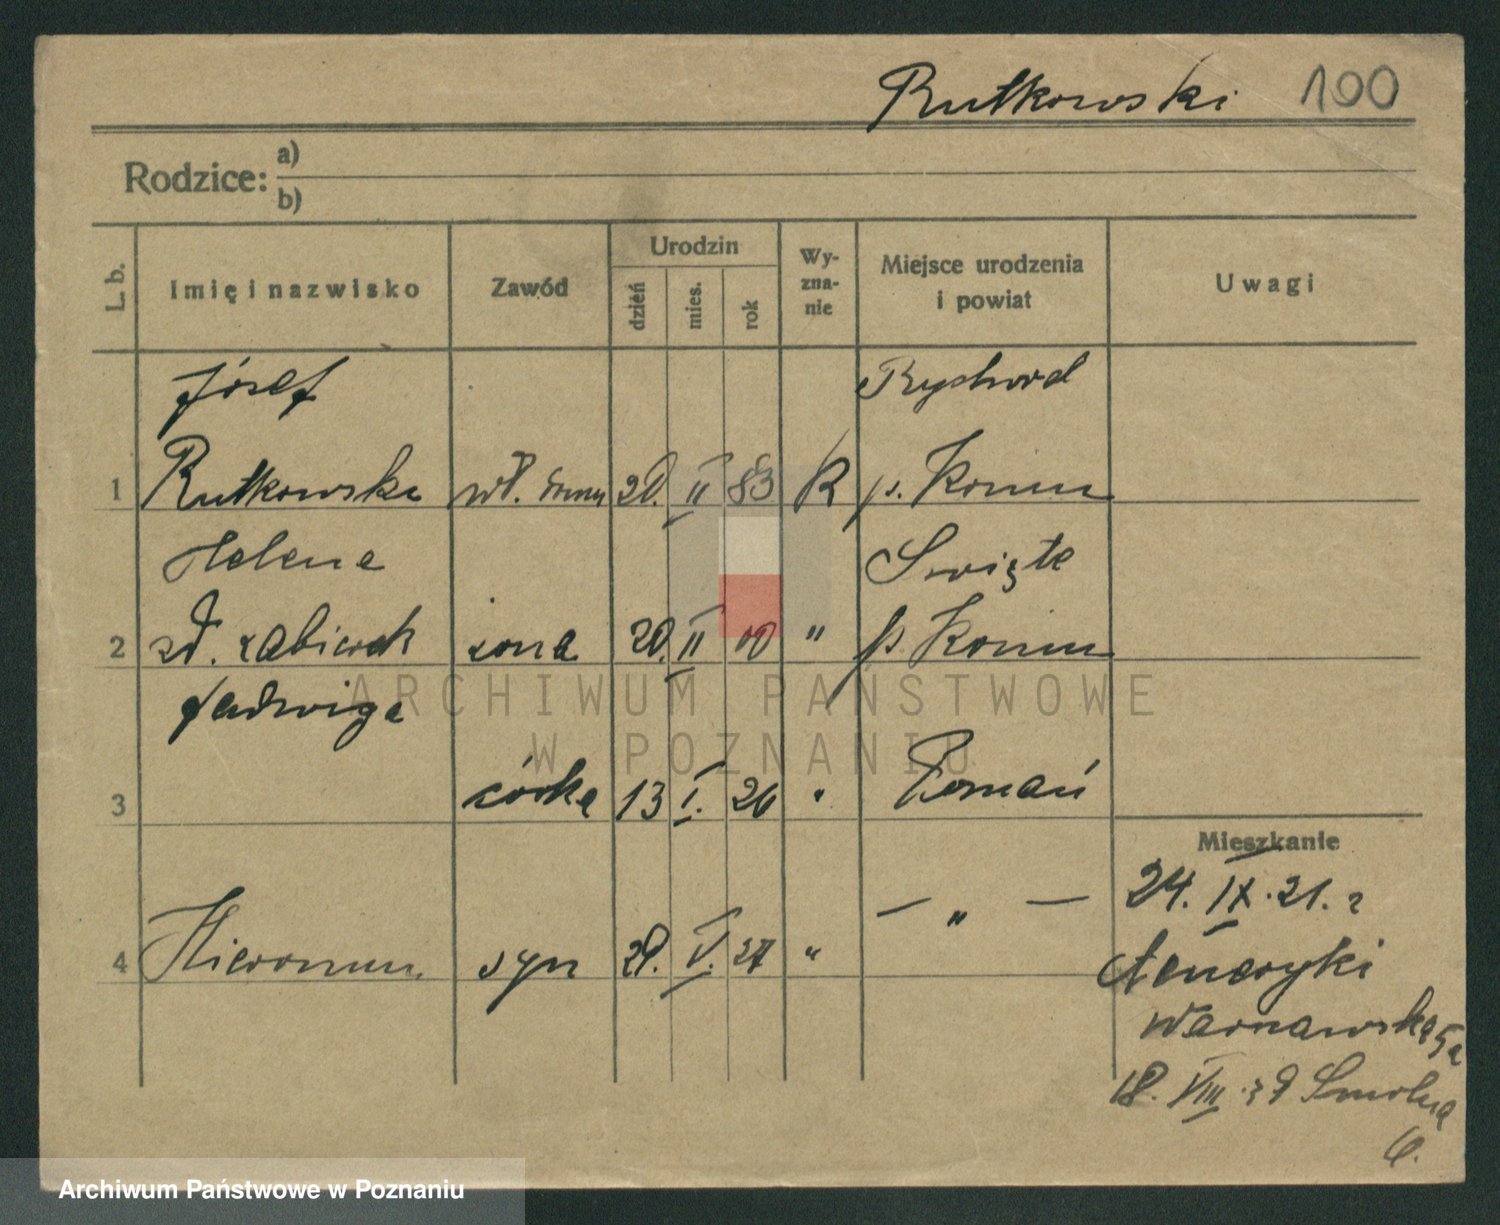 Rutkowski 100
Rodzice: a)
b)
L. b. Imię i nazwisko Zawód Urodzin dzień mies. rok Wy-zna-nie Miejsce urodzenia i powiat Uwagi
Józef Rychwał
1 Rutkowski wł. domu 20. II 83 K p. Konin
Helena Święte
2 żona 20. II 00 " p. Konin
Jadwiga
3 córka 13 I. 26 " Poznań
Mieszkanie
24. IX. 21. z
4 Hieronim syn 29. V. 27 " — " —
Ameryki
Warszawska 5a
18. VIII. 39 Smolna
6.
ARCHIWUM PAŃSTWOWE
W POZNANIU
Archiwum Państwowe w Poznaniu